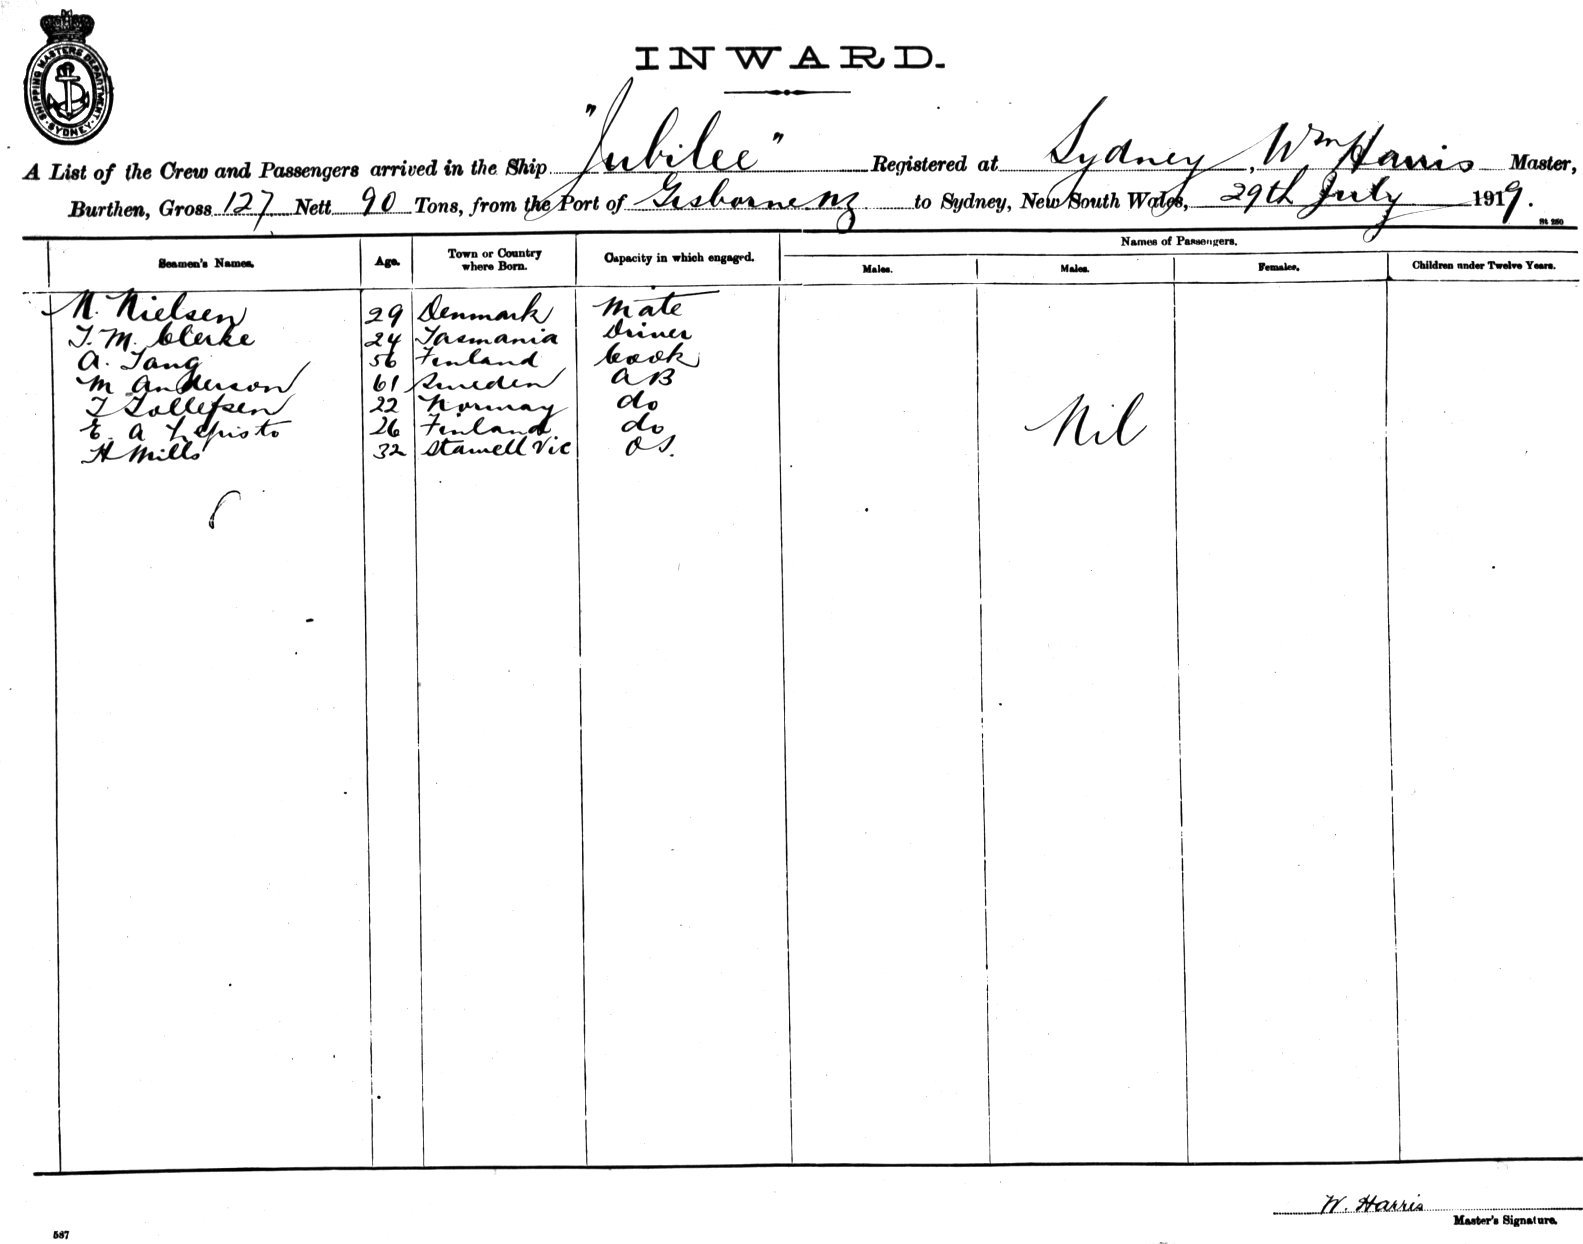 SHIPPING MASTERS DEPARTMENT
SYDNEY
INWARD.
A List of the Crew and Passengers arrived in the Ship "Jubilee" Registered at Sydney, Wm Harris Master,
Burthen, Gross 127 Nett 90 Tons, from the Port of Gisborne NZ to Sydney, New South Wales, 29th July 1919.
St 250
Seamen's Names. Age. Town or Country where Born. Capacity in which engaged. Names of Passengers.
Males. Males. Females. Children under Twelve Years.
N. Nielsen 29 Denmark Mate
T. M. Clerke 24 Tasmania Driver
A. Tang 56 Finland Cook
M Anderson 61 Sweden AB
T Tollefsen 22 Norway do
E. A Lepisto 26 Finland do
H Mills 32 Stawell Vic OS.
Nil
W. Harris
Master's Signature.
587